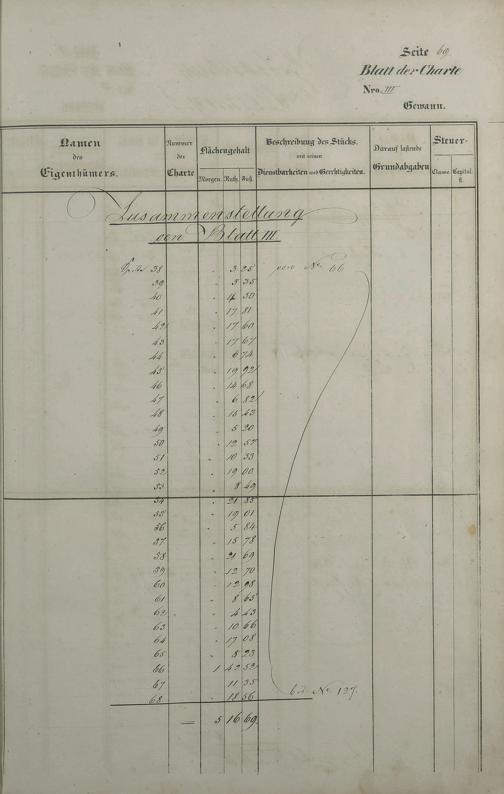 Seite 69
Blatt der Charte
Nro. III
Gewann.
Namen des Eigenthümers.
Nummer der Charte
Flächengehalt
Morgen. Ruth. Fuß.
Beschreibung des Stücks.
und seinen
Dienstbarkeiten und Gerchtigkeiten.
Darauf lastende Grundabgaben
Steuer-
Classe Capital fl.
Zusammenstellung
von Blatt III
38 - 3 25 No 66
39 - 5 35
40 - 4 30
41 - 17 81
42 - 17 60
43 - 17 67
44 - 6 74
45 - 19 92
46 - 14 68
47 - 6 82
48 - 15 43
49 - 5 20
50 - 12 52
51 - 10 33
52 - 19 00
53 - 8 49
54 - 21 85
55 - 19 01
56 - 5 84
57 - 15 78
58 - 21 69
59 - 12 70
60 - 12 98
61 - 8 65
62 - 4 43
63 - 10 66
64 - 17 08
65 - 8 23
66 1 42 52
67 11 35
68 - 18 56 bis No 127.
= 5 16 69